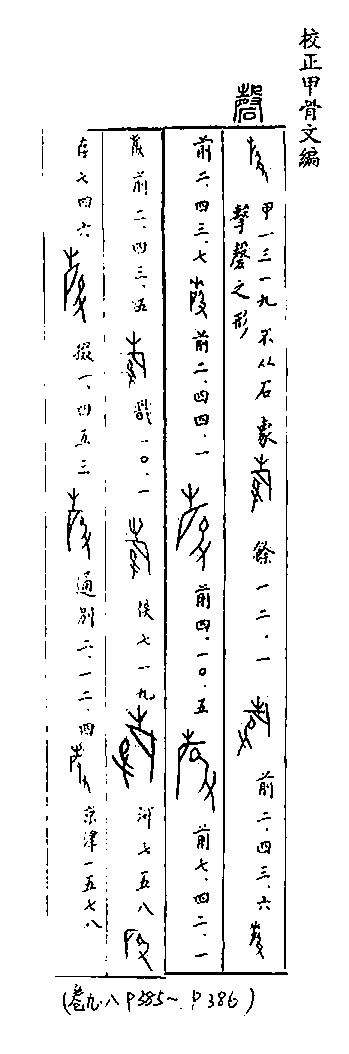 校正甲骨文編
磬
甲一三一九 不从石 象 餘一二.一 前二.四三.六
擊磬之形
前二.四三.七 前二.四四.一 前四.一〇.五 前七.四二.一
前二.四三.五 戩一〇.一 佚七一九 河七五八
存七四六 掇一.四五三 通別二.一二.四 京津一五七八
(卷九.八 P385~P386)